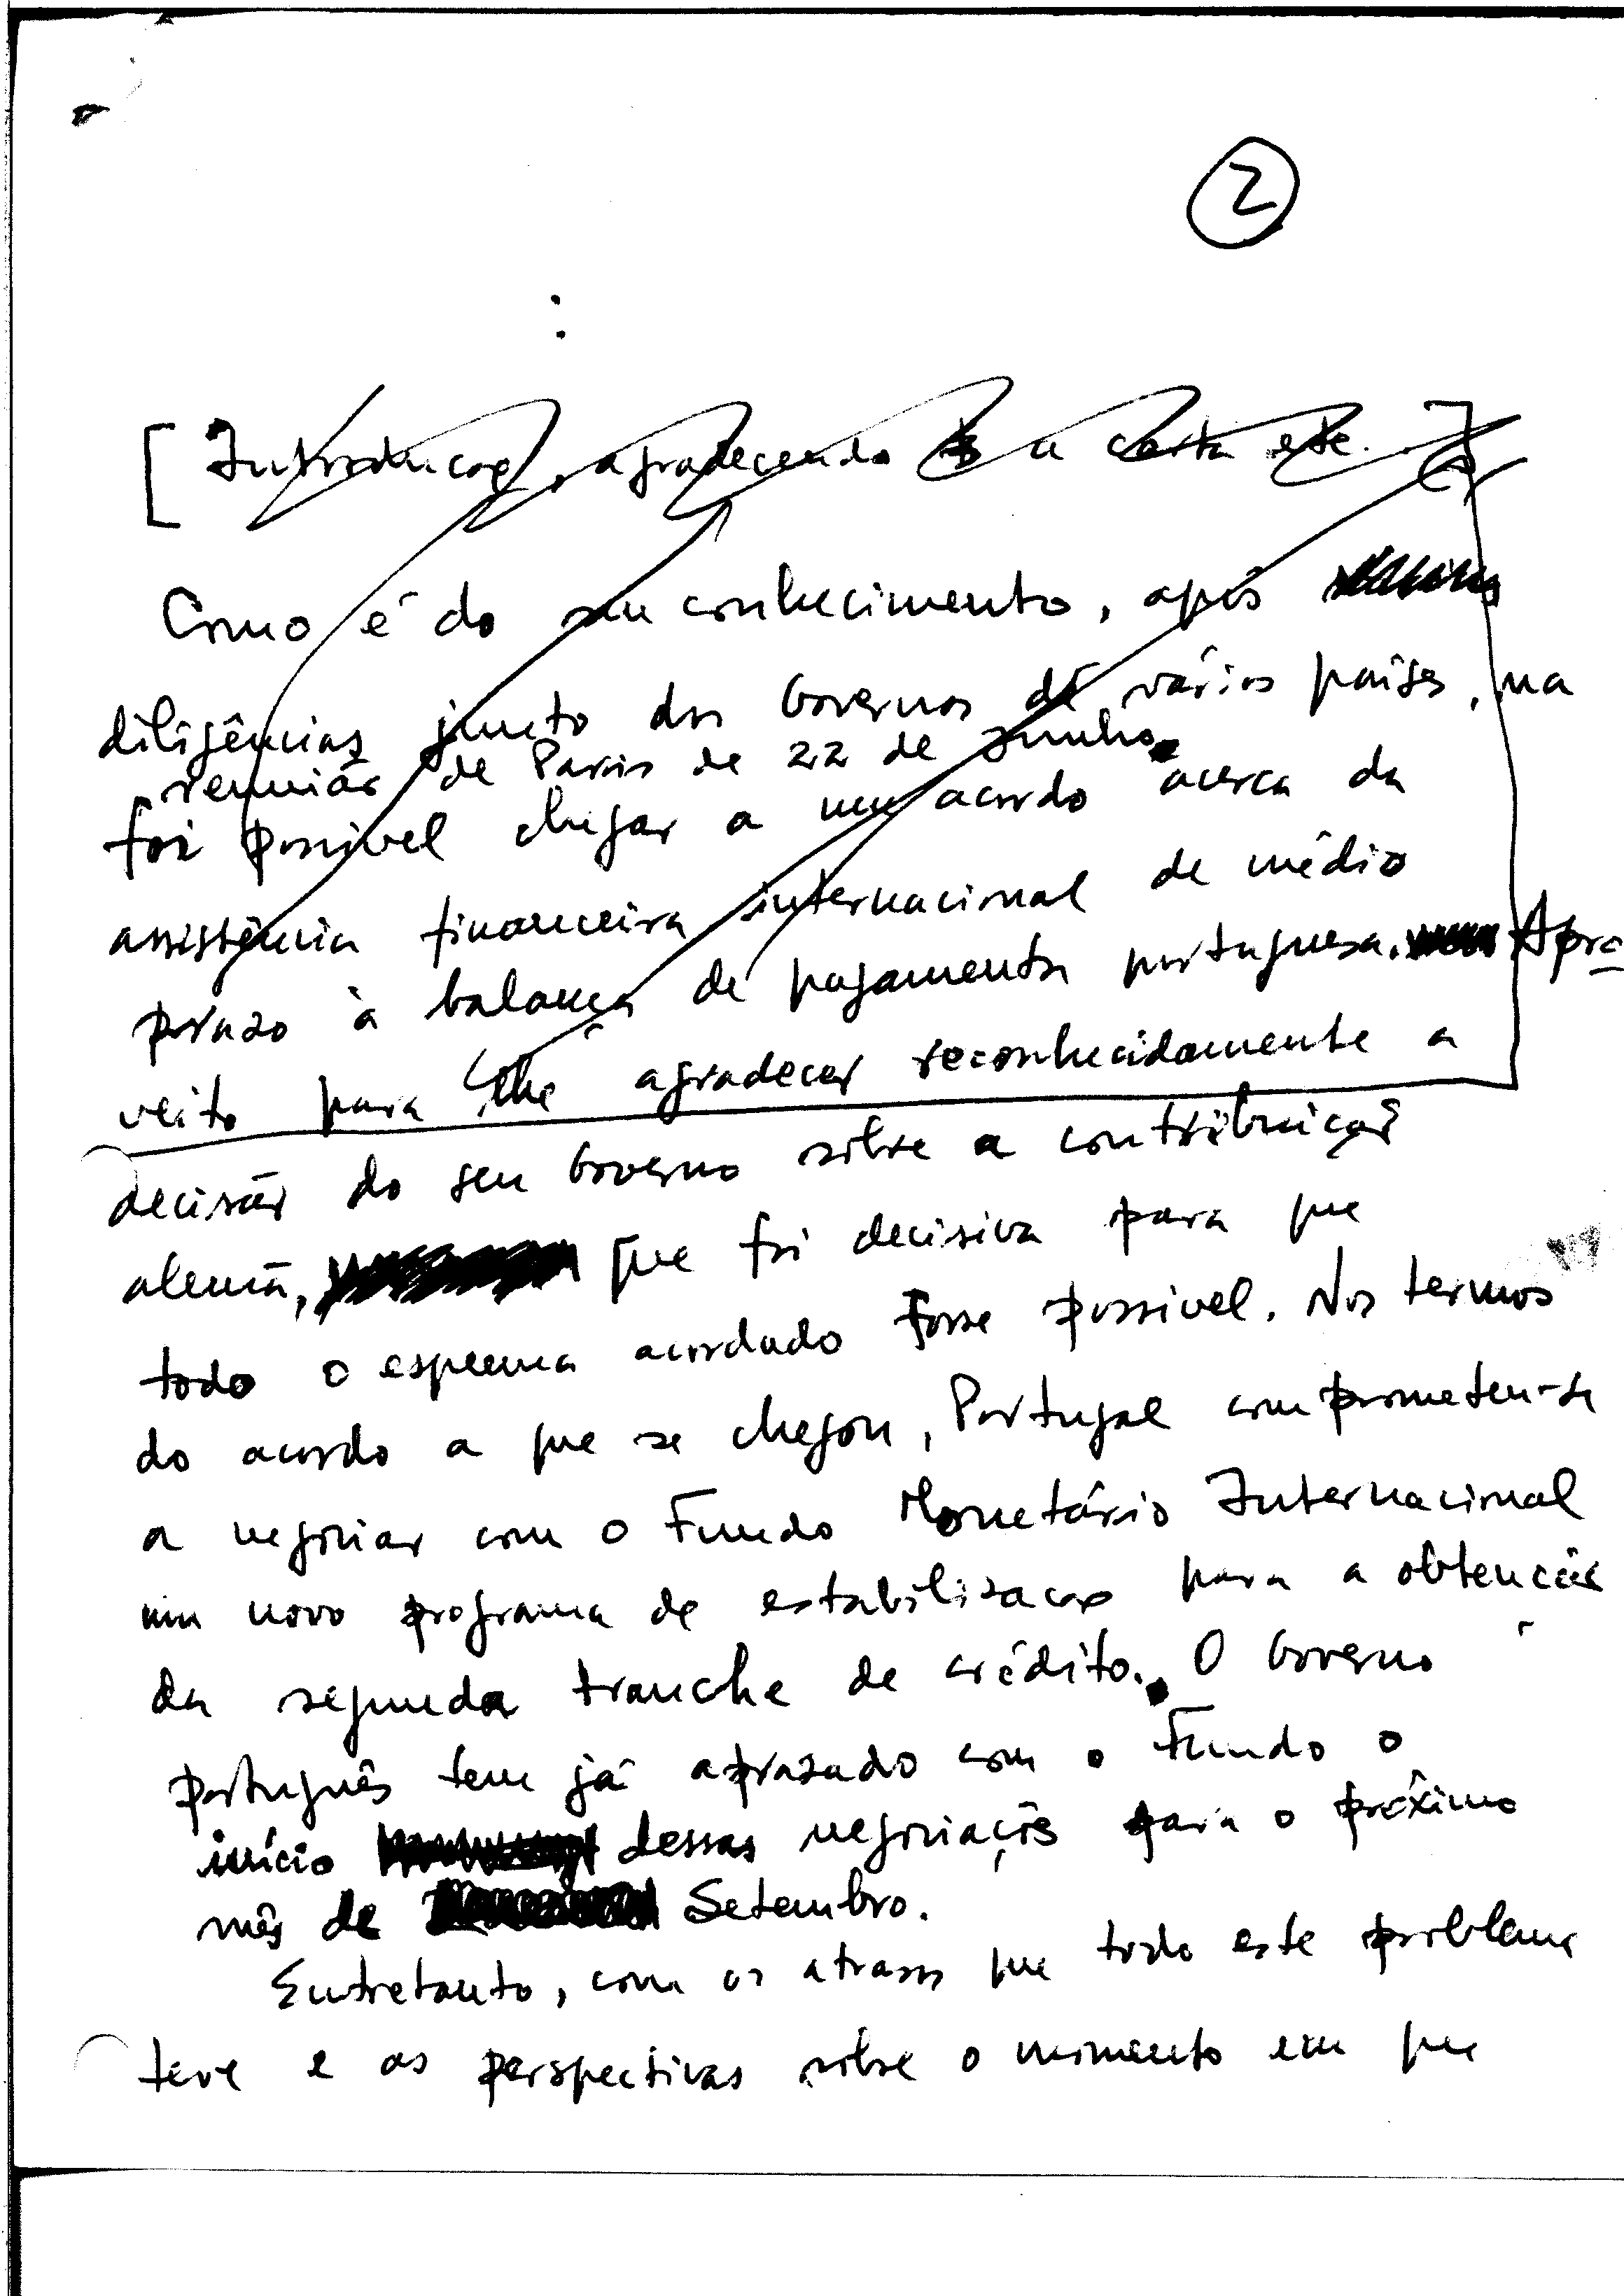 2
[Introdução, agradecendo a carta etc.]
Como é do seu conhecimento, após
diligências junto dos Governos de vários países, na
reunião de Paris de 22 de Junho
foi possivel chegar a um acordo acerca da
assistência financeira internacional de médio
prazo à balança de pagamentos portuguesa. Apro
veito para lhe agradecer reconhecidamente a
decisão do seu Governo sobre a contribuição
alemã, que foi decisiva para que
todo o esquema acordado fosse possivel. Nos termos
do acordo a que se chegou, Portugal comprometeu-se
a negociar com o Fundo Monetário Internacional
um novo programa de estabilização para a obtenção
da segunda tranche de crédito. O Governo
português tem já aprazado com o Fundo o
início dessas negociações para o próximo
mês de Setembro.
Entretanto, com os atrasos que todo este problema
teve e as perspectivas sobre o momento em que